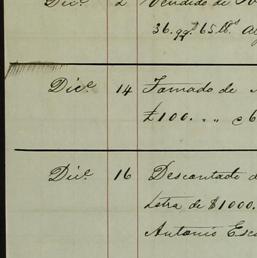 Dice. 2 Vendido de
36. qq. 65 lbs.
Dice. 14 Tomado de
£100. " " c6
Dice. 16 Descontado d
Letra de $1000.
Antonio Esc